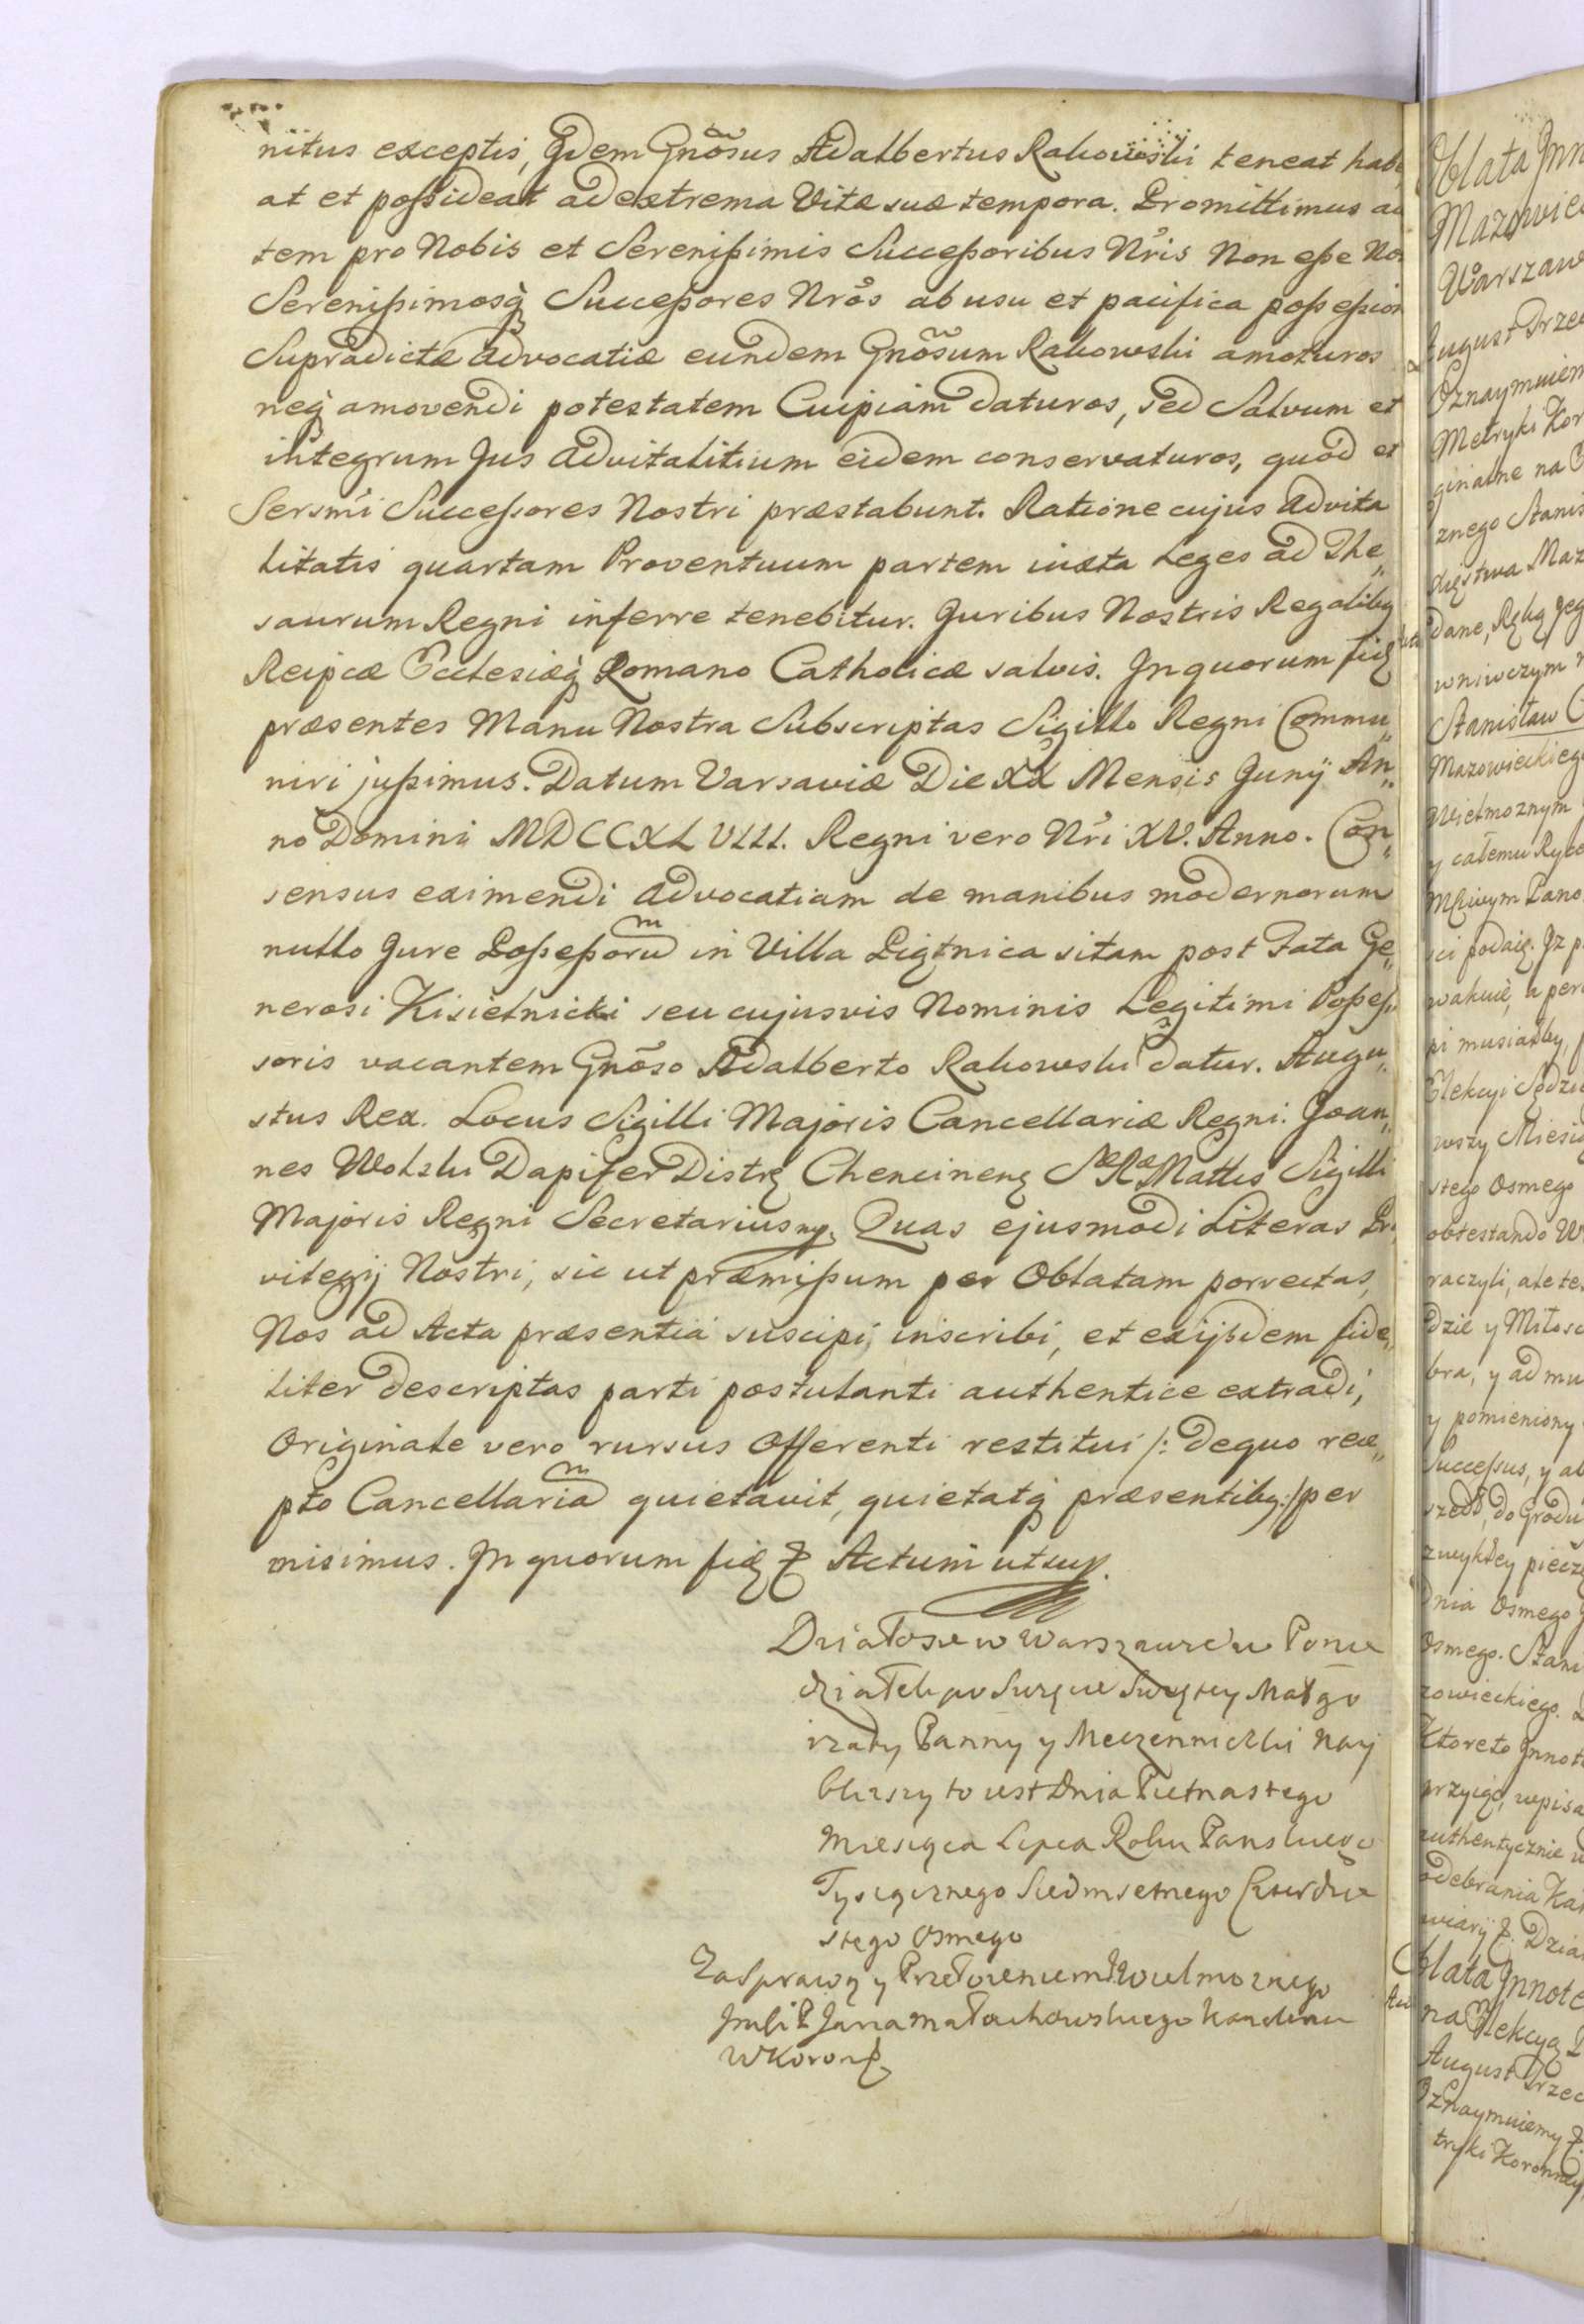 nitus exceptis, Idem Gnõsus Adalbertus Rakowski teneat habe
at et possideat ad extrema Vitæ suæ tempora. Promittimus au
tem pro Nobis et Serenissimis Successoribus Nr̃is Non esse Nos
Serenissimosq̃ Successores Nrõs ab usu et pacifica possession
Supradictæ Advocatiæ eundem Gnõsum Rakowski amoturos
neq̃ amovendi potestatem Cuipiam daturos, sed Salvum et
integrum Jus Advitalitium eidem conservaturos, quod et
Sersmi Successores Nostri præstabunt. Ratione cujus Advita
litatis quartam Proventuum partem iuxta Leges ad The„
saurum Regni inferre tenebitur. Juribus Nostris Regalibq
Reipcæ Ecclesiæq̃ Romano Catholicæ salvis. In quorum fidę
præsentes Manu Nostra Subscriptas Sigillo Regni Commu„
niri jussimus. Datum Varsaviæ Die XX Mensis Junij An„
no Domini MDCCXLVIII. Regni vero Nr̃i XV. Anno. Con„
sensus eximendi Advocatiam de manibus modernorum
nullo Jure Possessorũ in Villa Piętnica sitam post Fata Ge„
nerosi Kisielnicki seu cujusvis Nominis Legitimi Posses„
soris vacantem Gnõso Adalberto Rakowski datur. Augu„
stus Rex. Locus Sigilli Majoris Cancellariæ Regni. Joan„
nes Wolski Dapifer Distrę Chencinenę SæRæ Mattis Sigilli
Majoris Regni Secretarius mp. Quas ejusmodi Literas Pri
vilegij Nostri, sic ut præmissum per Oblatam porrectas,
Nos ad Acta præsentia suscipi, inscribi, et ex ijsdem fide„
liter descriptas parti postulanti authentice extradi,
Originale vero rursus Offerenti restitui /: de quo rece„
pto Cancellariã quietavit, quietatq̃ præsentibq :/ per
misimus. In quorum fidę & Actum ut sup.
Działo sie w Warszawie w Ponie
działek po Swięcie Swiętey Małgo
rzaty Panny y Meczenniczki Nay
bliższy to iest Dnia Pietnastego
Miesiąca Lipca Roku Panskiego
Tysiącznego Siedmsetnego Czterdzie
stego Osmego
Za Sprawą y Przełożeniem JWielmożnego
Jmści P Jana Małachowskiego Kanclerza
W Koronę
Oblata Inn
Mazowiec
Warszaw
August Trzec
Oznaymuiem
Metryki Kor
ginalne na
znego Stanis
xięstwa Maz
dane, Ręką Jeg
wniwczym n
Stanisław C
Mazowieckieg
Wielmożnym
y całemu Ryce
Mściwym Pano
sci podaię. Iz p
wakuie, a per
pi musiałby,
Elekcyi Sędzie
wszy Miesią
stego Osmego
obtestando W
raczyli, ale te
dzie y Miłosc
bra, y ad mu
y pomieniony
Successus, y ab
szedł, do Grodu
zwykłey pieczę
Dnia Osmego
Osmego. Stani
zowieckiego.
Ktore to Innot
przyiąć, wpisa
authentycznie w
odebrania Kan
wiary &. Dzia
Oblata Innote
na Elekcyą P
August Trzec
Oznaymuiemy &.
tryki Koronney